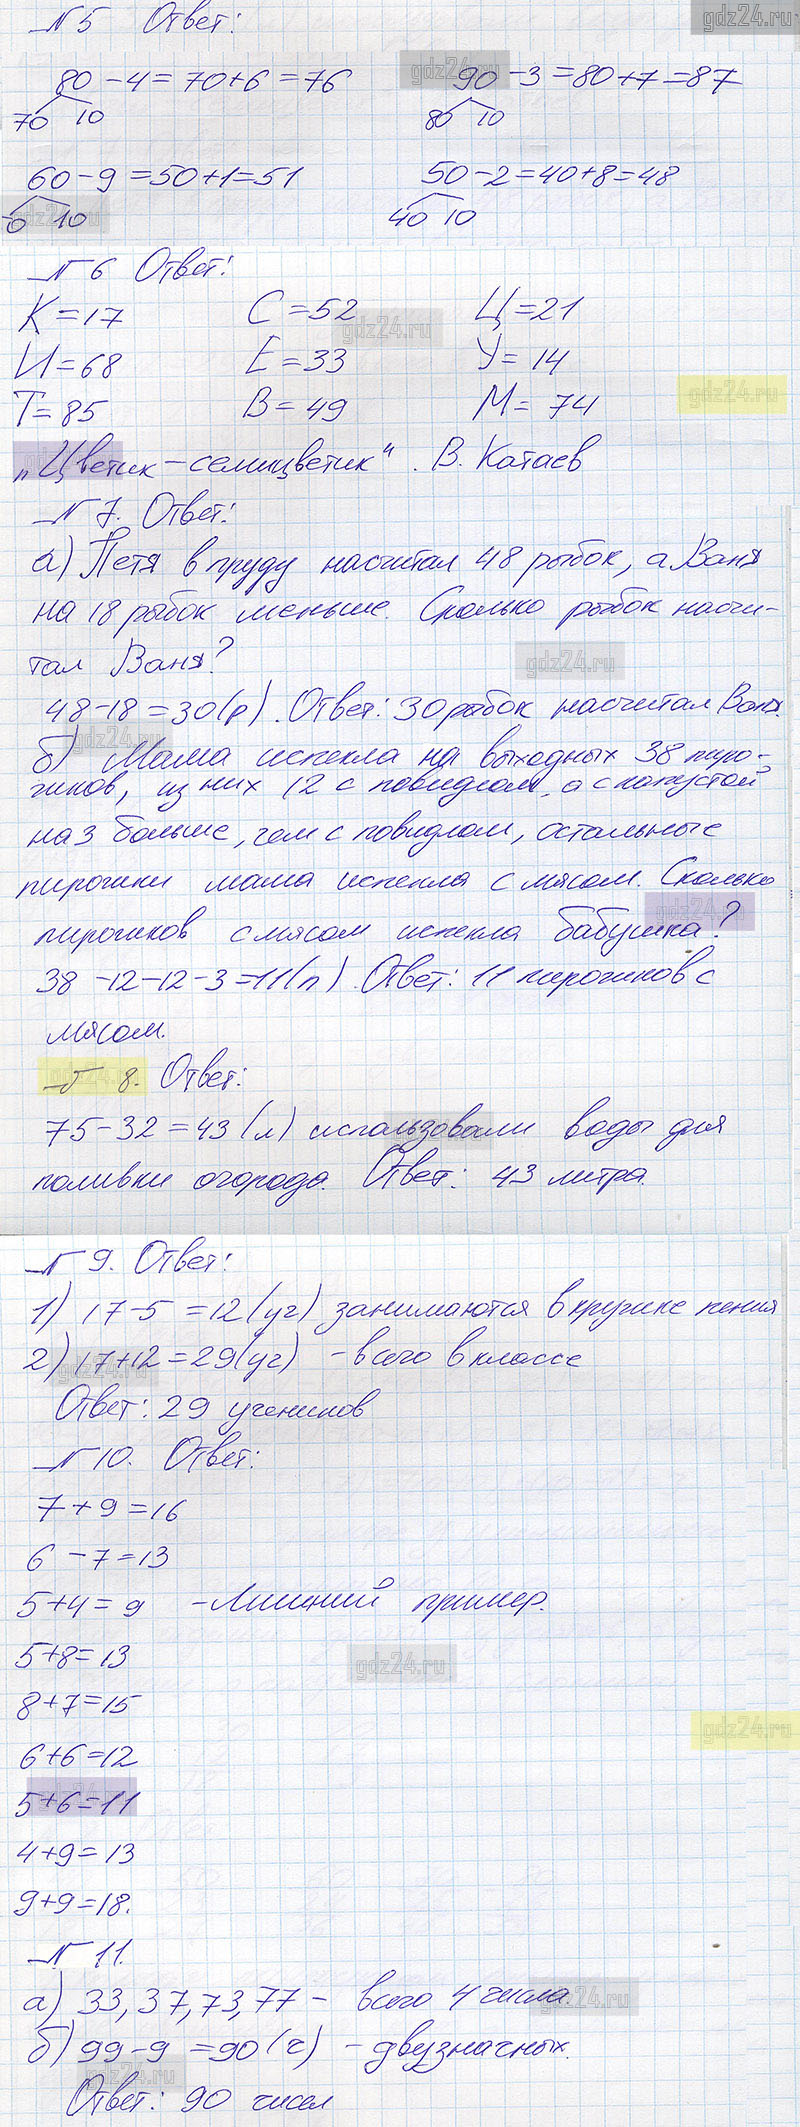 gdz24.ru
№5 Ответ:
80-4=70+6=76 90-3=80+7=87
70 10 80 10
60-9=50+1=51 50-2=40+8=48
0 10 40 10
№6 Ответ:
К=17 С=52 Ц=21
И=68 Е=33 У=14
Т=85 В=49 М=74
„Цветик-семицветик". В. Катаев
№7. Ответ:
а) Петя в пруду насчитал 48 рыбок, а Ваня
на 18 рыбок меньше. Сколько рыбок насчи-
тал Ваня?
48-18=30(р). Ответ: 30 рыбок насчитал Ваня.
б) Мама испекла на выходных 38 пиро-
жков, из них 12 с повидлом, а с капустой
на 3 больше, чем с повидлом, остальные
пирожки мама испекла с мясом. Сколько
пирожков с мясом испекла бабушка?
38-12-12-3=11(п). Ответ: 11 пирожков с
мясом.
№8. Ответ:
75-32=43(л) использовали воды для
поливки огорода. Ответ: 43 литра.
№9. Ответ:
1) 17-5=12(уч) занимаются в кружке пения
2) 17+12=29(уч) - всего в классе
Ответ: 29 учеников
№10. Ответ:
7+9=16
6-7=13
5+4=9 - Лишний пример.
5+8=13
8+7=15
6+6=12
5+6=11
4+9=13
9+9=18.
№11.
а) 33, 37, 73, 77 - всего 4 числа.
б) 99-9=90(ч) - двузначных.
Ответ: 90 чисел